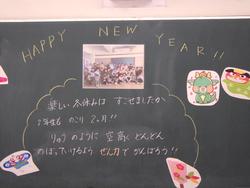 HAPPY NEW YEAR!!
楽しい冬休みは すごせましたか
1年生も のこり 2ヶ月!!
りゅうのように 空高く どんどん
のぼっていけるよう ぜん力で がんばろう!!